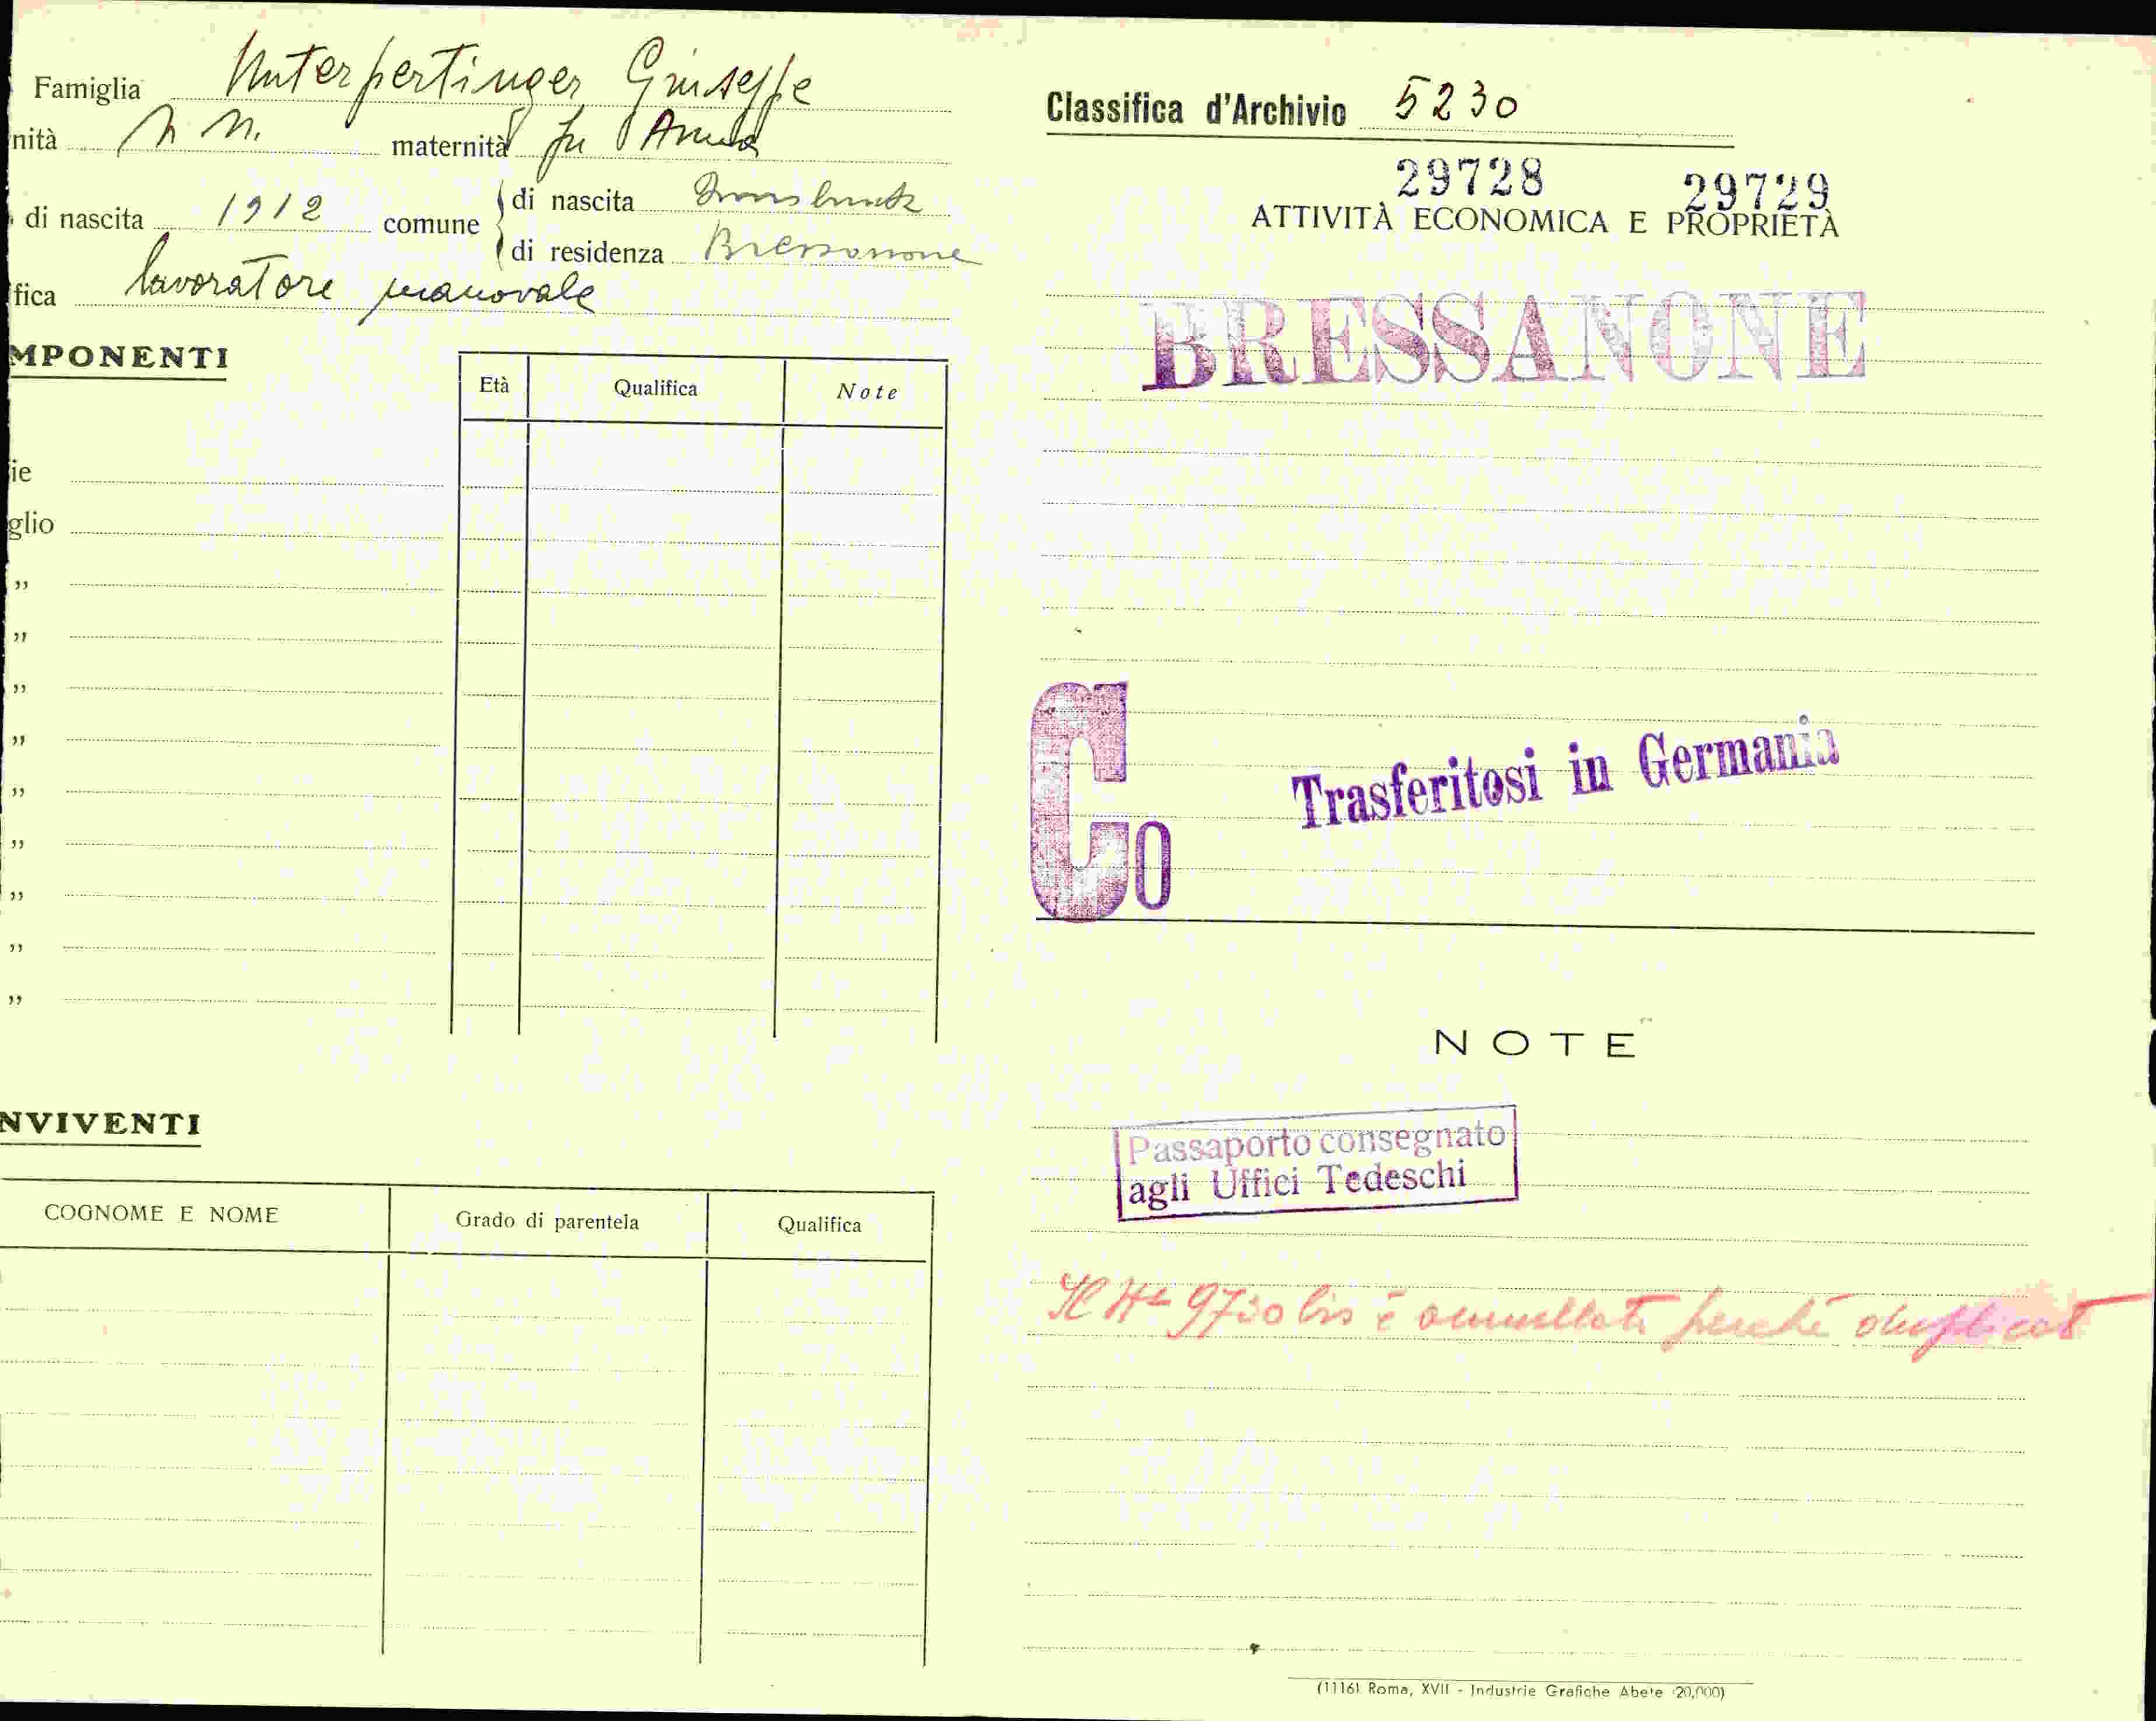 Famiglia Unterpertinger Giuseppe
nità N N. maternità fu Anna
di nascita 1912 comune di nascita Innsbruck
di residenza Bressanone
fica lavoratore manovale
MPONENTI
Età Qualifica Note
ie
glio
„
„
„
„
„
„
„
„
„
NVIVENTI
COGNOME E NOME Grado di parentela Qualifica
Classifica d'Archivio 5230
29728 29729
ATTIVITÀ ECONOMICA E PROPRIETÀ
BRESSANONE
Trasferitosi in Germania
Co
NOTE
Passaporto consegnato
agli Uffici Tedeschi
Il 9730 bis è annullato perché duplicat
(1116) Roma, XVII - Industrie Grafiche Abete 20,000)